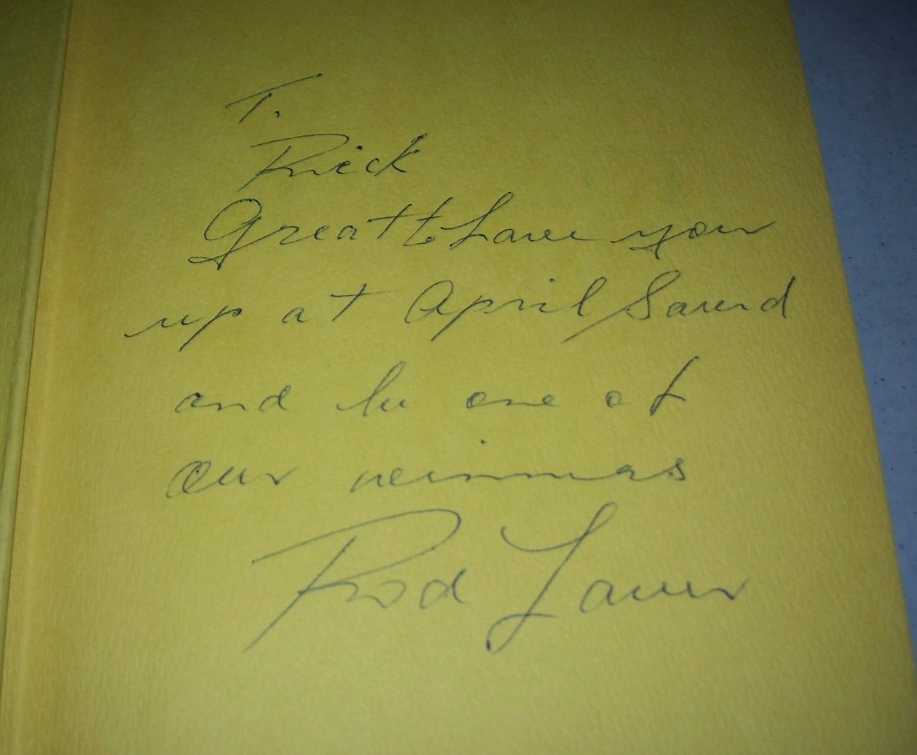 To
Rick
Great to have you
up at April Sound
and be one of
our winners
Rod Laver